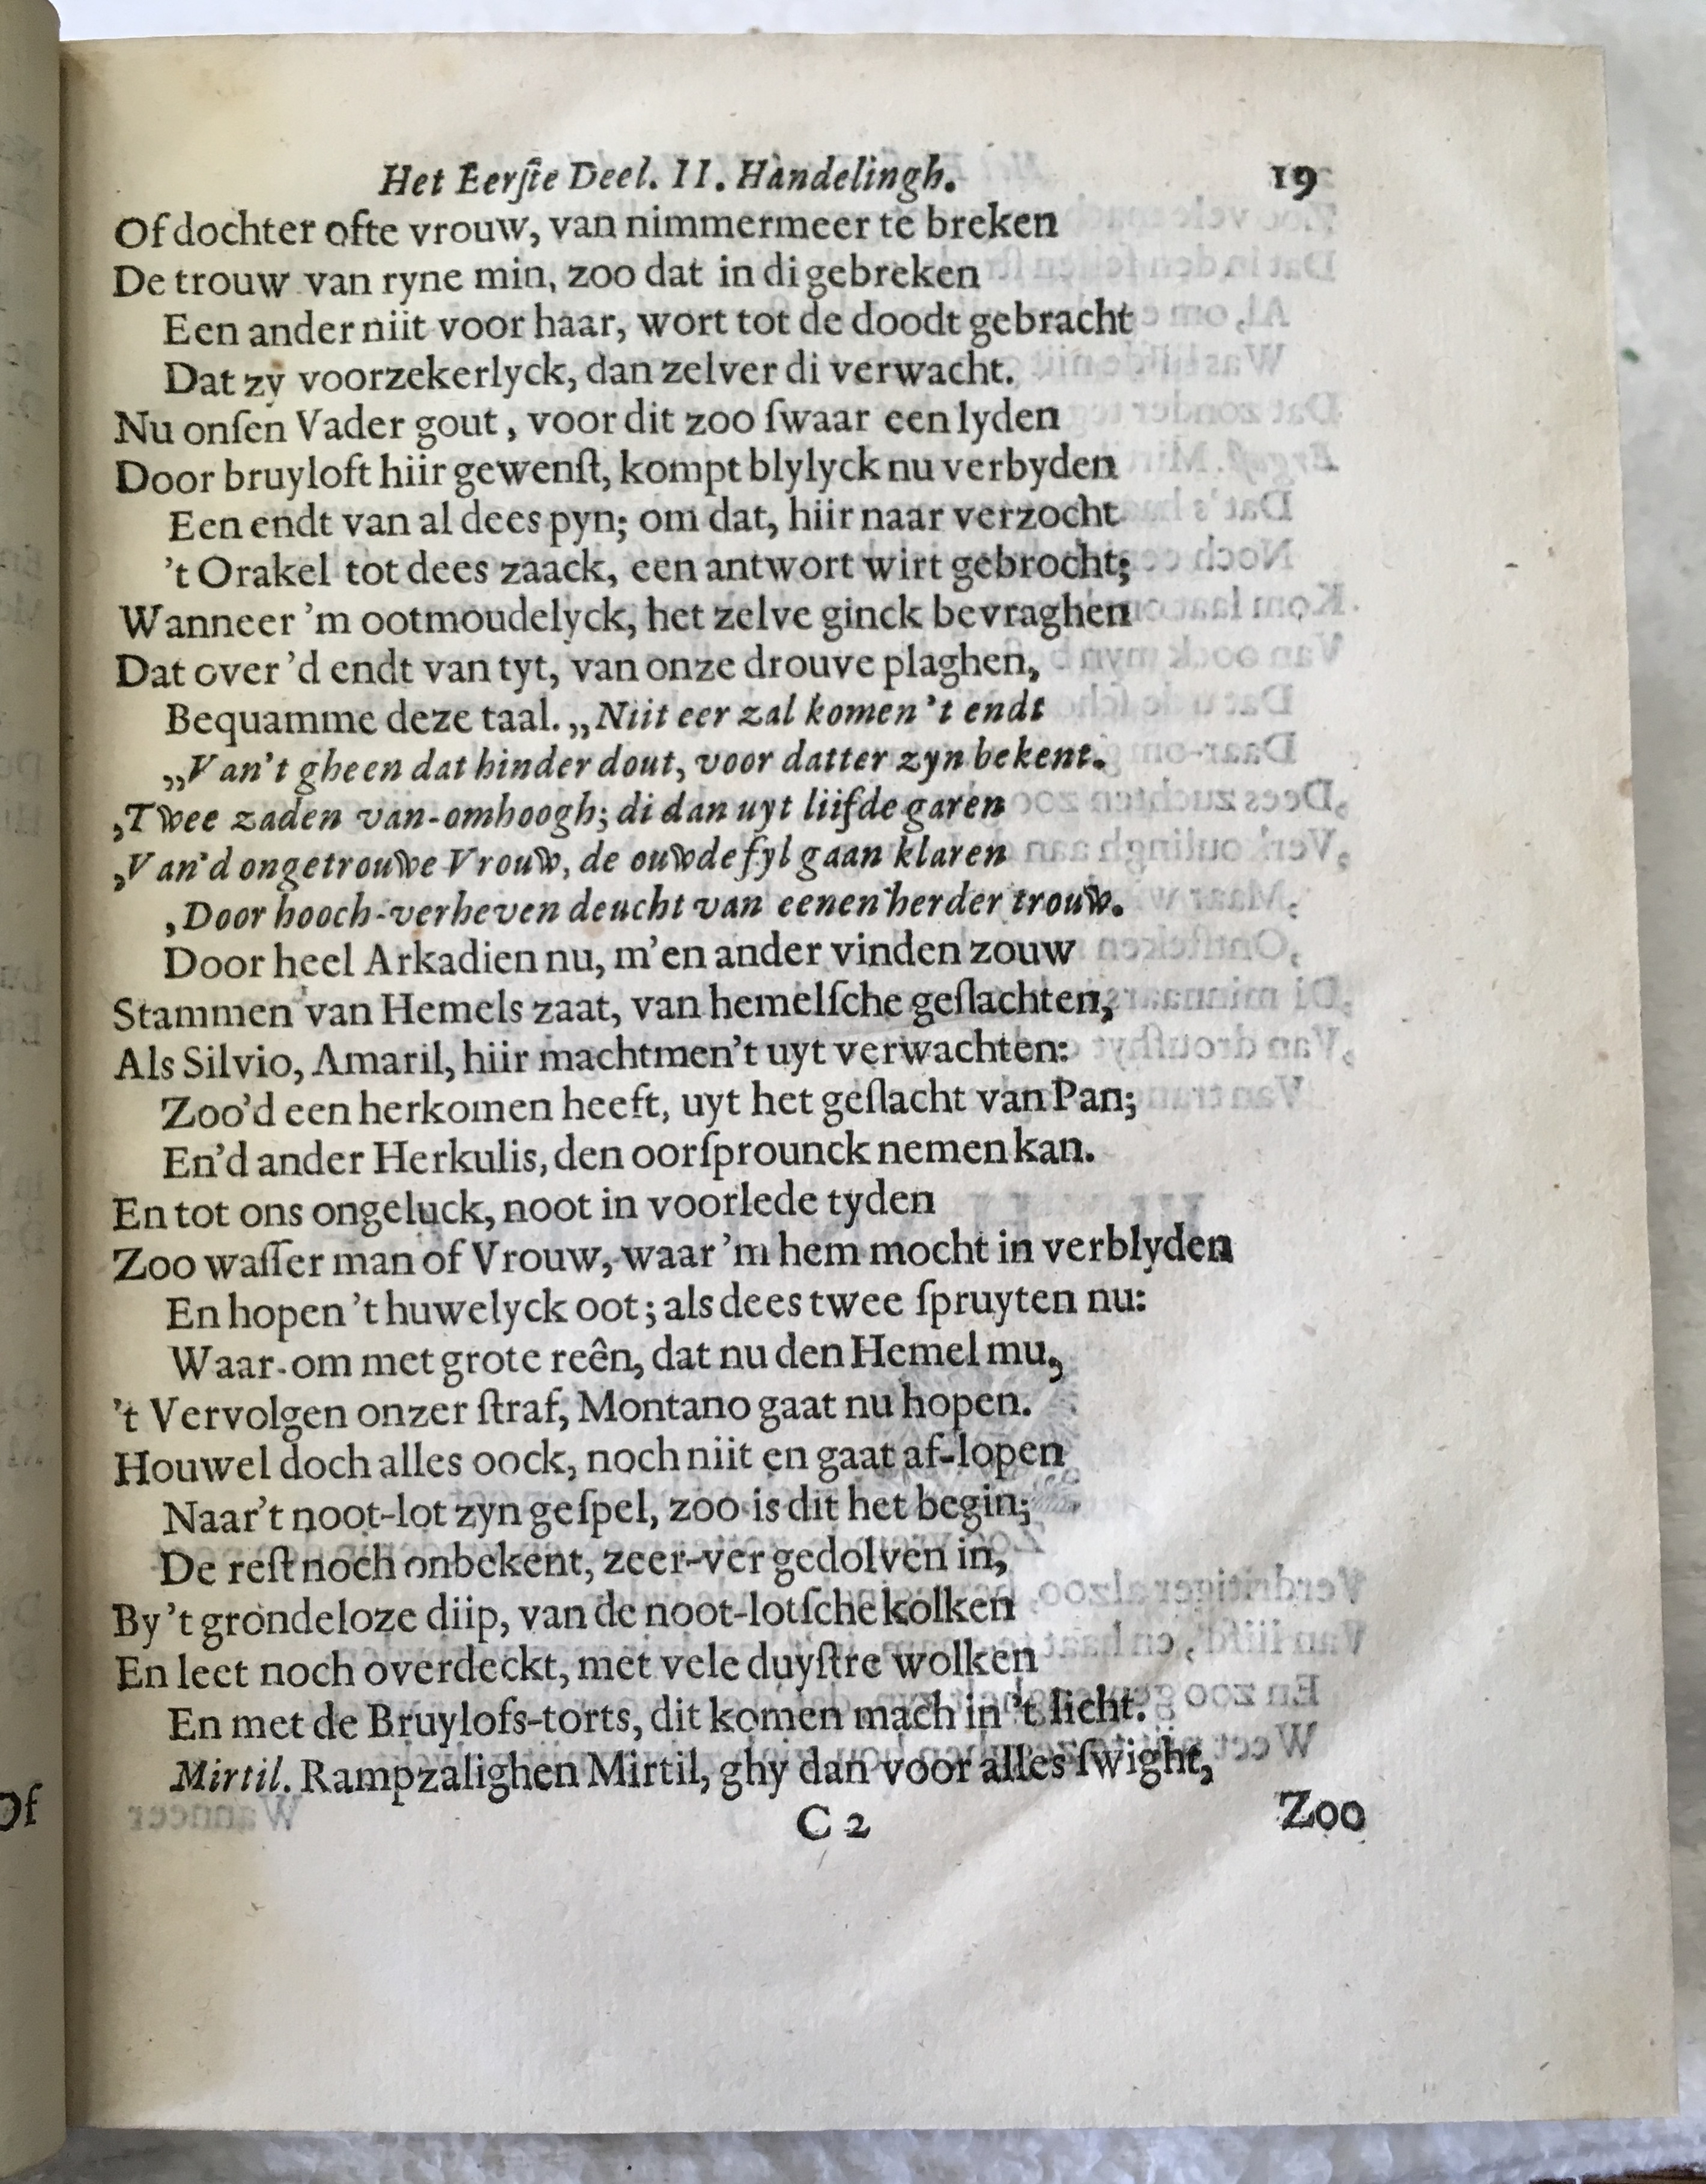 Het Eerſte Deel. II. Handelingh. 19
Of dochter ofte vrouw, van nimmermeer te breken
De trouw van ryne min, zoo dat in di gebreken
Een ander niit voor haar, wort tot de doodt gebracht
Dat zy voorzekerlyck, dan zelver di verwacht.
Nu onſen Vader gout, voor dit zoo ſwaar een lyden
Door bruyloft hiir gewenſt, kompt blylyck nu verbyden
Een endt van al dees pyn; om dat, hiir naar verzocht
't Orakel tot dees zaack, een antwort wirt gebrocht;
Wanneer 'm ootmoudelyck, het zelve ginck bevraghen
Dat over 'd endt van tyt, van onze drouve plaghen,
Bequamme deze taal. „Niit eer zal komen 't endt
„Van't gheen dat hinder dout, voor datter zyn bekent.
,Twee zaden van-omhoogh; di dan uyt liifde garen
,Van'd ongetrouwe Vrouw, de ouwde fyl gaan klaren
,Door hooch-verheven deucht van eenen herder trouw.
Door heel Arkadien nu, m'en ander vinden zouw
Stammen van Hemels zaat, van hemelſche geſlachten,
Als Silvio, Amaril, hiir machtmen't uyt verwachten:
Zoo'd een herkomen heeft, uyt het geſlacht van Pan;
En'd ander Herkulis, den oorſprounck nemen kan.
En tot ons ongeluck, noot in voorlede tyden
Zoo waſſer man of Vrouw, waar 'm hem mocht in verblyden
En hopen 't huwelyck oot; als dees twee ſpruyten nu:
Waar-om met grote reên, dat nu den Hemel mu,
't Vervolgen onzer ſtraf, Montano gaat nu hopen.
Houwel doch alles oock, noch niit en gaat af-lopen
Naar't noot-lot zyn geſpel, zoo is dit het begin;
De reſt noch onbekent, zeer-ver gedolven in,
By 't grondeloze diip, van de noot-lotſche kolken
En leet noch overdeckt, met vele duyſtre wolken
En met de Bruylofs-torts, dit komen mach in 't licht.
Mirtil. Rampzalighen Mirtil, ghy dan voor alles ſwight,
C 2 Zoo